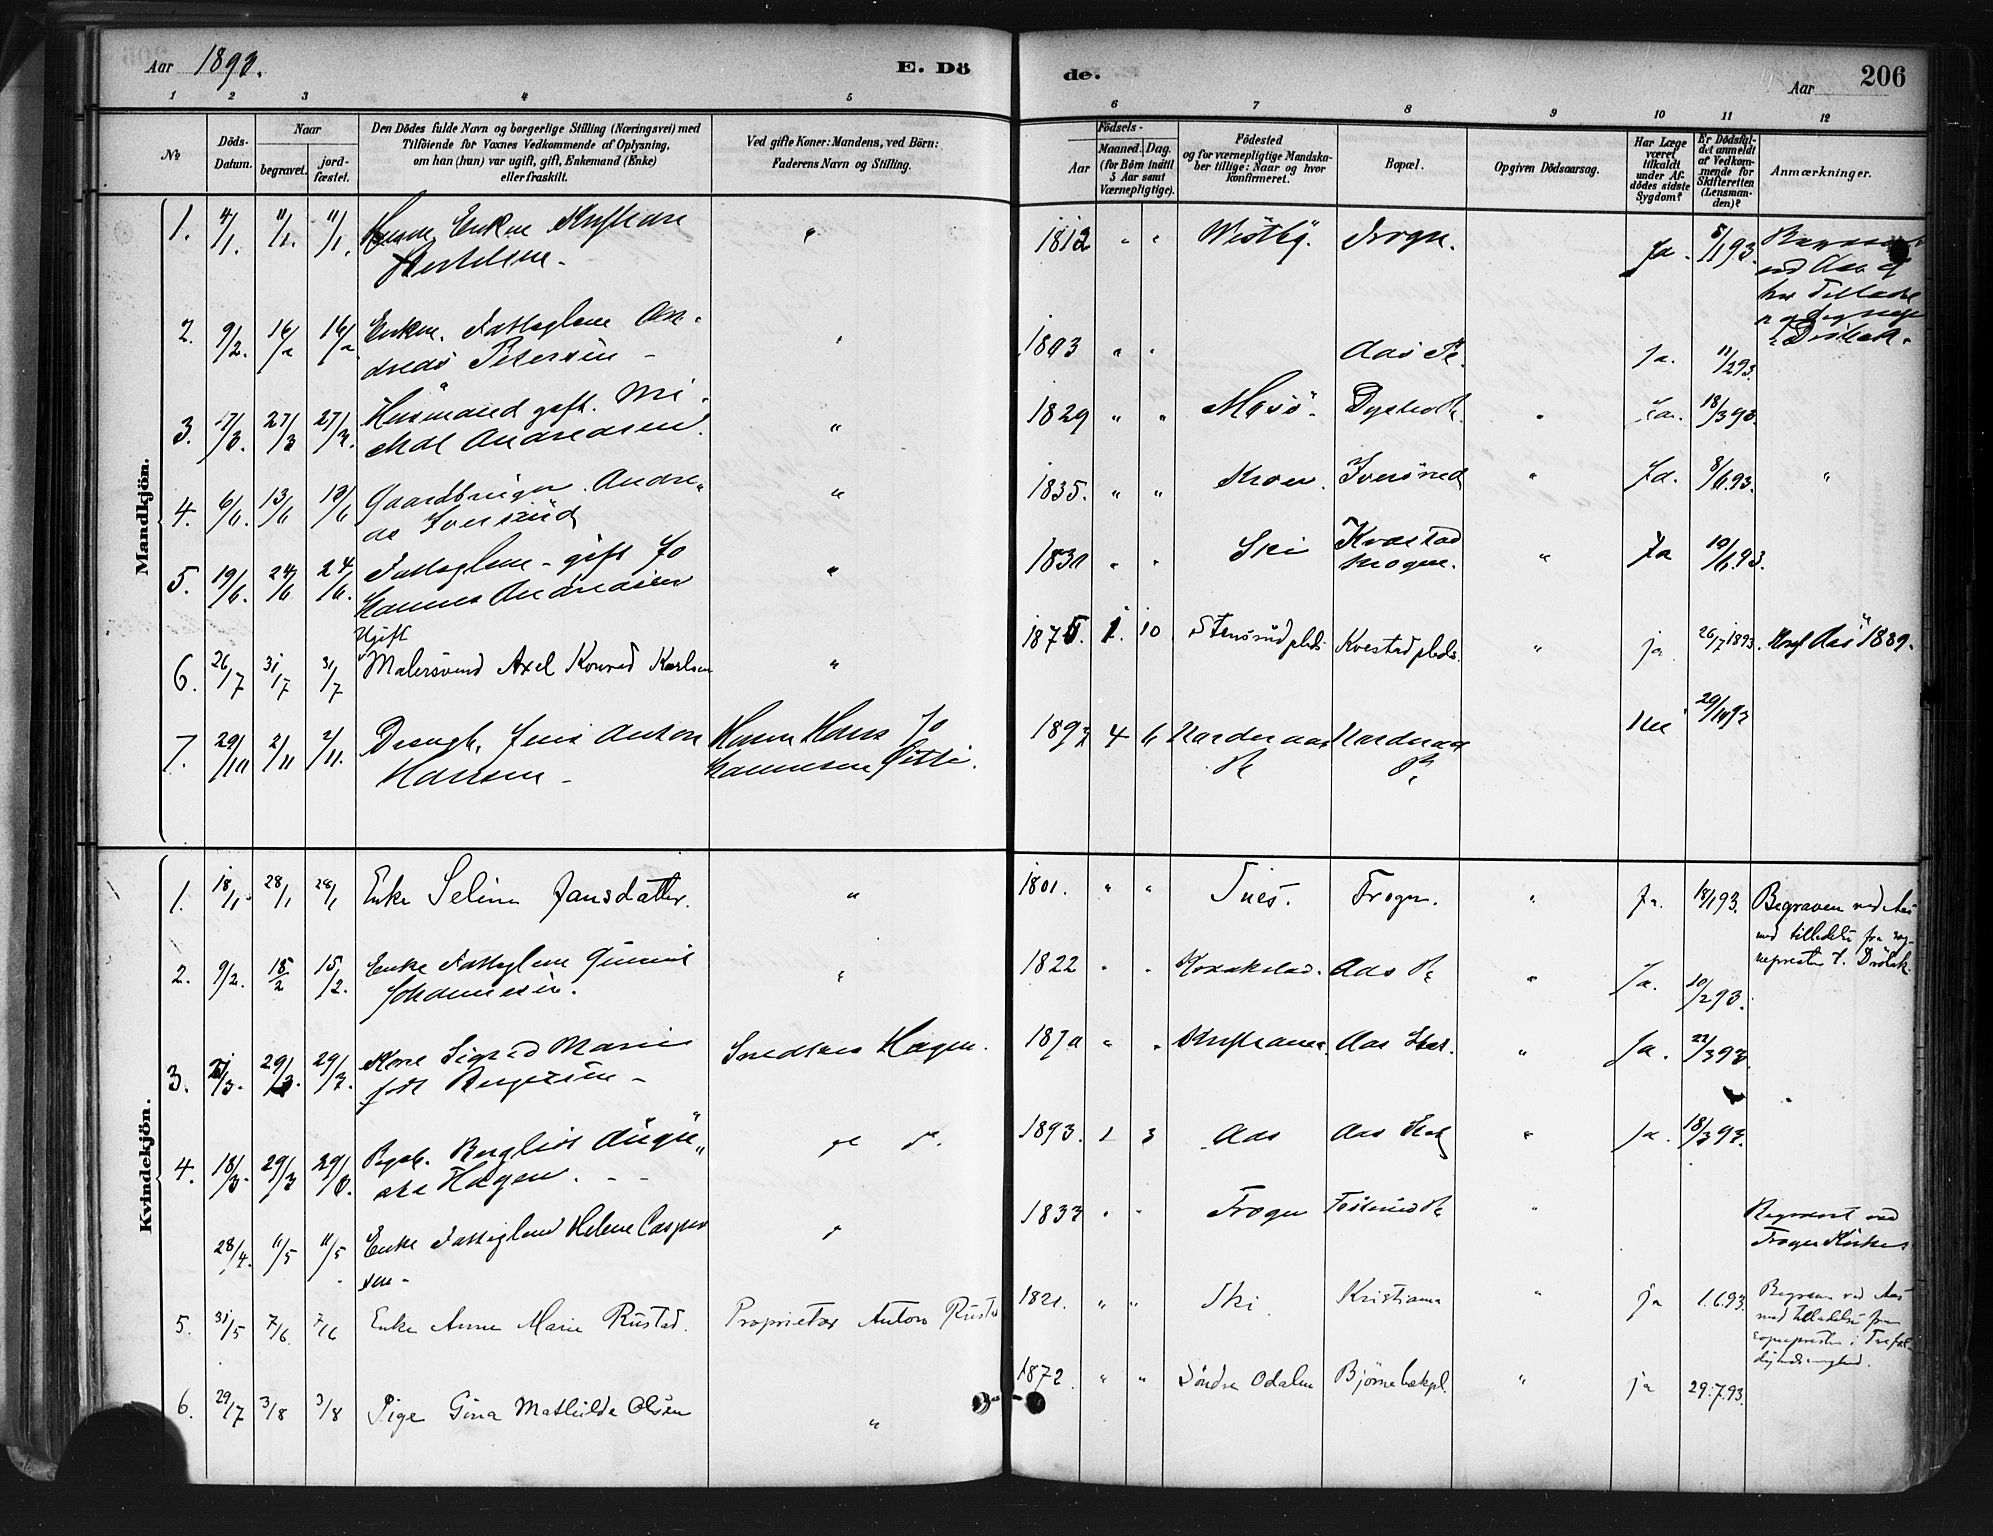 Aar 1893.
E. Dö
de.
Aar
206
1 2 3 4 5 6 7 8 9 10 11 12
No
Döds-Datum.
Naar
begravet.
jord-fæstet.
Den Dödes fulde Navn og borgerlige Stilling (Næringsvei) med
Tilföiende for Voxnes Vedkommende af Oplysning,
om han (hun) var ugift, gift, Enkemand (Enke)
eller fraskilt.
Ved gifte Koner: Mandens, ved Börn:
Faderens Navn og Stilling.
Födsels-
Aar
Maaned. Dag.
(for Börn indtil
5 Aar samt
Værnepligtige).
Födested
og for værnepligtige Mandska-
ber tillige: Naar og hvor
konfirmeret.
Bopæl.
Opgiven Dödsaarsag.
Har Læge
været
tilkaldt
under Af-
dödes sidste
Sygdom?
Er Dödsfal-
det anmeldt
af Vedkom-
mende for
Skifteretten
(Lensman-
den)?
Anmærkninger.
Mandkjön.
1. 4/1. 11/1. 11/1. Enkm Kristian
" 1812 " " Vestby. Frogn. Ja. 5/1 93.
2. 9/2. 16/2 16/2 Enkm. Fattiglem An-
dreas Petersen -
" 1893 " " Aas Pr. Ja. 11/2 93.
3. 17/3. 27/3 27/3. Husmand gift. Mi-
chal Andreasen.
" 1829 " " Moss. " Ja. 18/3 93.
4. 6/6. 13/6 13/6 Gaardbruger. Andre-
as Iversrud
" 1835. " " Kroer. Iversrud " Ja. 8/6.93. "
5. 19/6. 24/6 24/6. Fattiglem - gift Jo
hannes Andreasen
" 1830 " " Ski Kvæstad
skogen. " Ja 19/6.93.
Ugift
6. 26/7 31/7 31/7 Malersvend Axel Konrad Karlsen
" 1875. 1. 10 Stensrud plds. Kvestad plds. " ja 26/7 1893. Konf Aas 1889.
7. 29/10 2/11 2/11. Drengb. Jens Anton
Hansen -
Husm Hans Jo
hannesen
1893 4 6 Norderaas
Pr
Norderaas
Pr. Nei 29/10 93
Kvindekjön.
1. 18/1. 28/1 28/1 Enke Seline Jansdatter.
" 1801. " " Næs. Frogn. " Ja. 18/1 93. Begraven ved Aas
med tilladelse fra sog-
nepresten t. Dröbak.
2. 9/2. 15/2 15/2. Enke Fattiglem Gunnil
Johannesen.
" 1822 " " Kraakstad. Aas Pr " Ja. 10/2 93.
3. 21/3. 29/3. 29/3. Kone Sigrid Marie
född Bergersen -
Snedker Hagen.
1870 " " Kristiania. Aas Stat. " Ja. 22/3 93
4. 18/3. 29/3 29/3. Pigeb. Bergliot Augu-
sta Hagen. - -
1893. 1 3 Aas Aas Stat " Ja. 18/3 93.
28/4. 11/5 11/5 Enke Fattiglem Helene Casper
sen -
" 1833 " " Frogn "
Begravet ved
Frogn Kirke
5. 31/5 7/6. 7/6 Enke Anne Marie Rustad. Proprietær Anton Rustad
1821. " " Ski Kristiania " ja 1.6.93. Begraven ved Aas
med tilladelse fra
sognepresten i Trefol-
dighedsmenighed.
6. 29/7 3/8 3/8 Pige Gina Mathilde Olsen
" 1872. " " Söndre Odalen Björnebækpl. " ja 29.7.93.